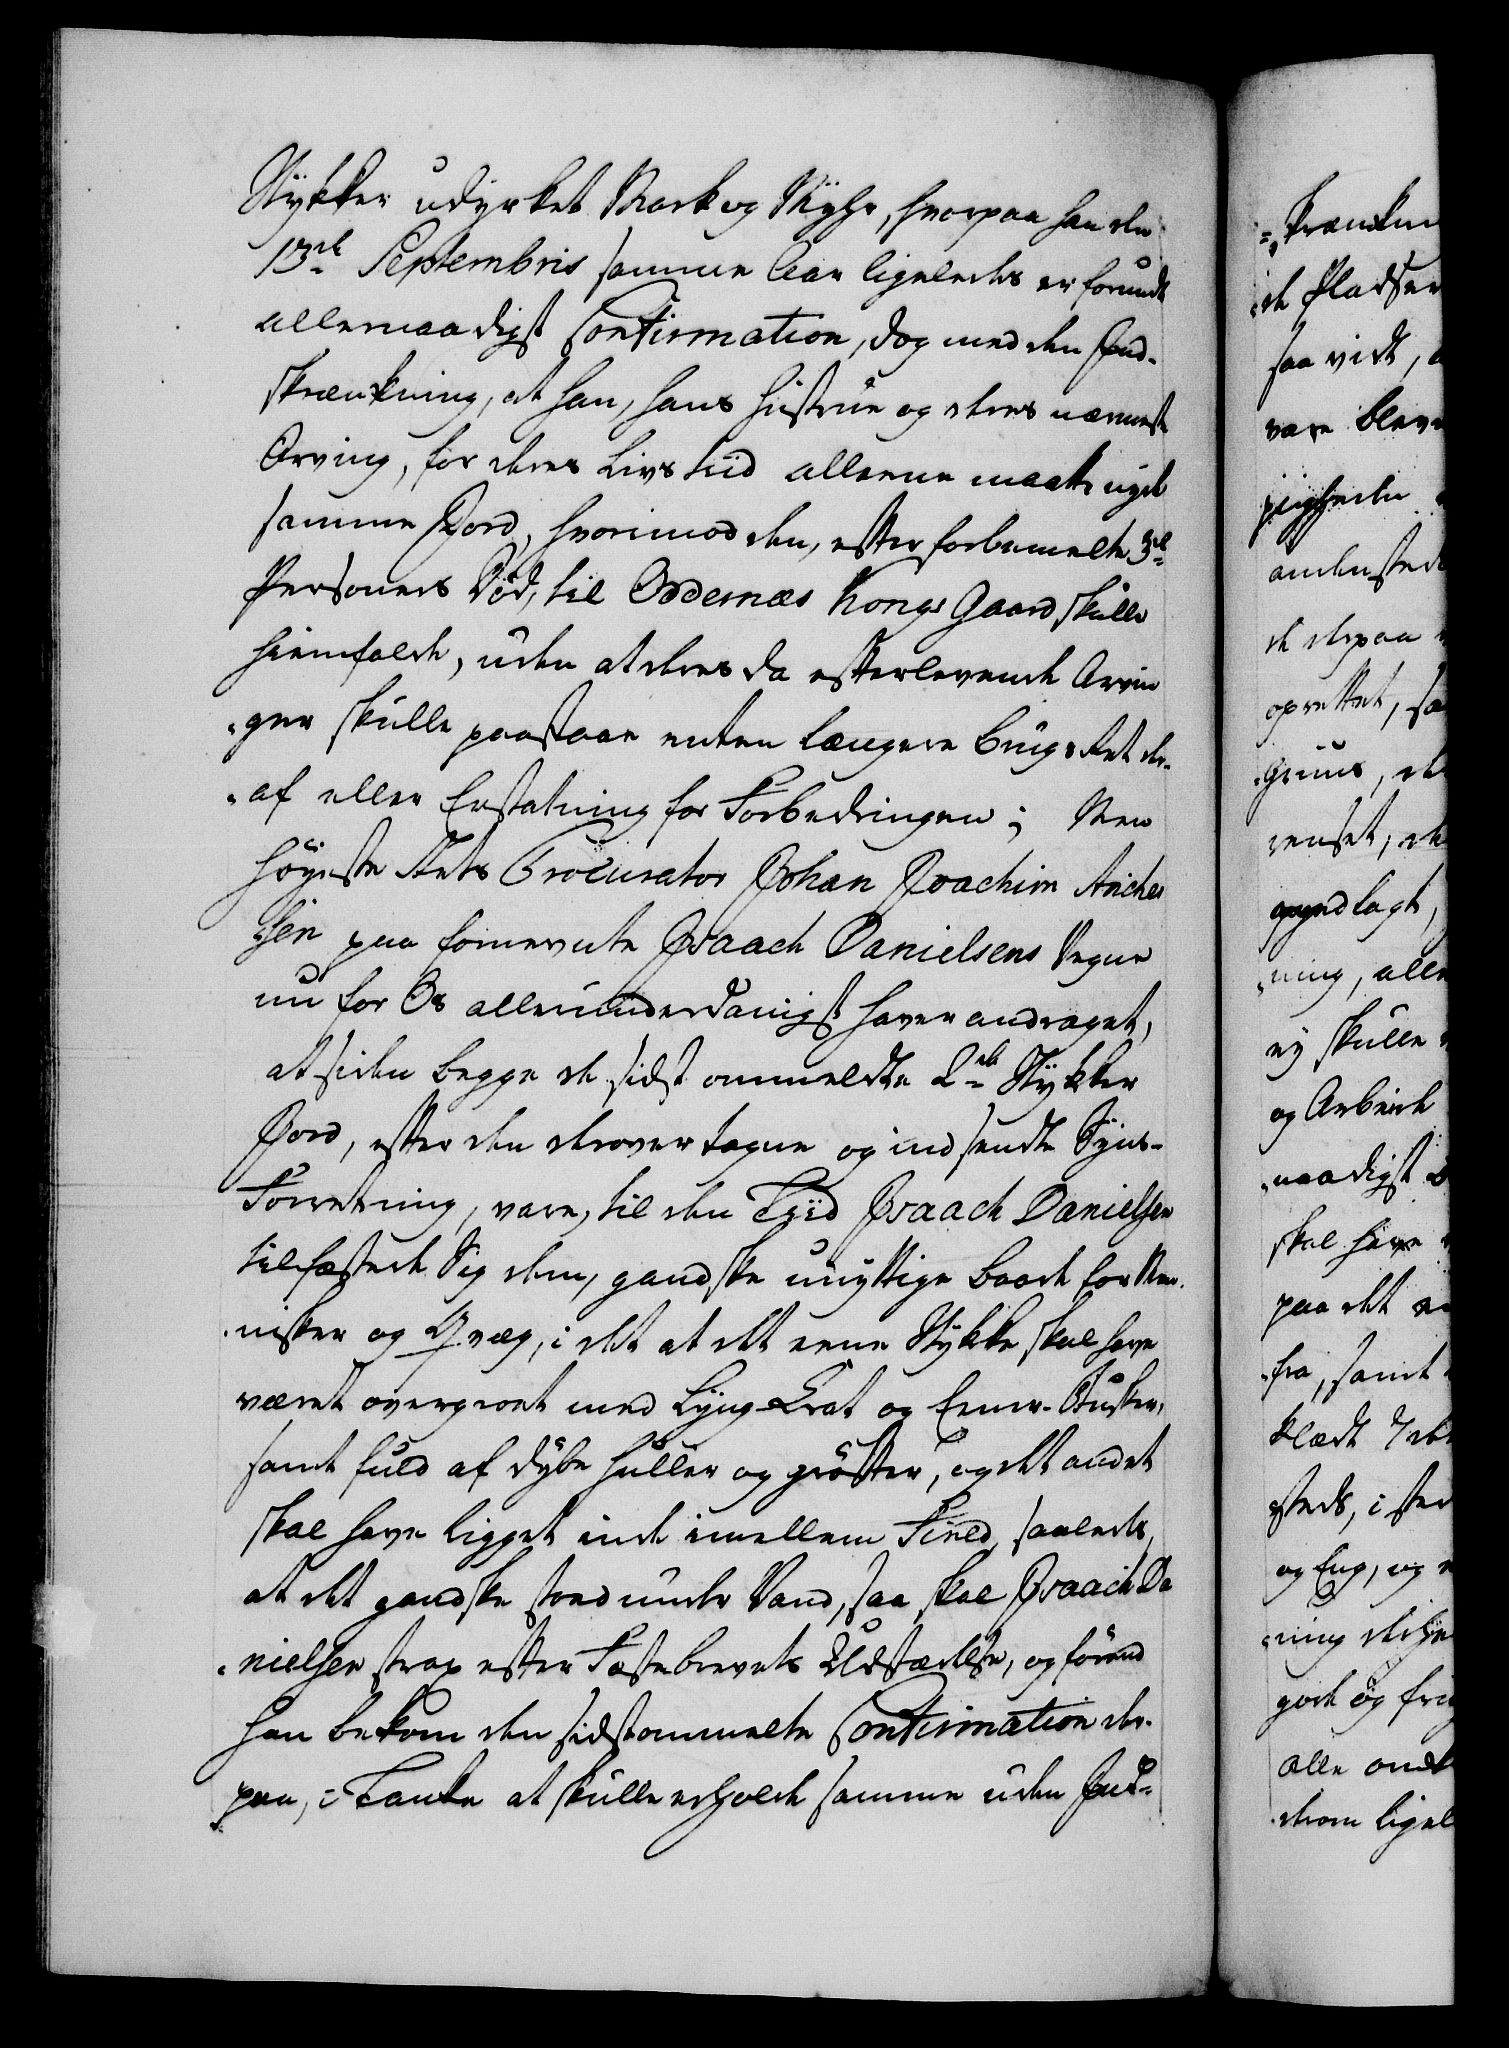 Stykker udyrket Mark og Myhr, hvorpaa han den
13de Septembris samme Aar ligeledes er forundt
allernaadigst Confirmation, dog med den Ind-
skrænkning, at han, hans Hustrue og deres nærmeste
Arving, for deres Livs tiid alleene maatte nyde
samme Jord, hvorimod den, efter forbemelte 3de
Personers Død, til Oddernæs Kongs Gaard skulle
hiemfalde, uden at deres da efterlevende Arvin
-ger skulle paastaae enten længere Brugs Ret der-
-af eller Erstatning for Forbedringen; Men
Høyeste Rets Procurator Johan Joachim Anches
sen paa fornevnte Isaach Danielsens Vegne
nu for Os allerunderdanigst haver andraget,
at siden begge de sidst ommeldte 2de Stykker
Jord, efter den derover tagne og indsendte Syns-
Forretning, vare, til den Tiid Isaach Danielsen
tilfæstede Sig dem, gandske unyttige baade for Men-
-nisker og Qvæg, i det at det eene Stykke skal have
været overgroet med Lyng-Krat og Eener-Buske,
samt fuld af dybe Huller og grøfter, og det andet
skal have ligget inde imellem Field, saaledes,
at det gandske stod under Vand, saa skal Isaach Da
-nielsen strax efter Fæstebrevets Udstædelse, og førend
han bekom den sidstommelte Confirmation der-
paa, i Tanke at skulle erholde samme uden Ind-
-skrænkni
-de Pladser
saa vidt,
være bleve
andensteds
de derpaa
oprettet, sa
-Gruus, de
renset, de
-ning, alle
ey skulle
og Arbeide
-naadigst
skal have
paa det
-fra, samt
klædt
-steds, i sted
og Eng, og
gode og fri
alle and
-drom ligel